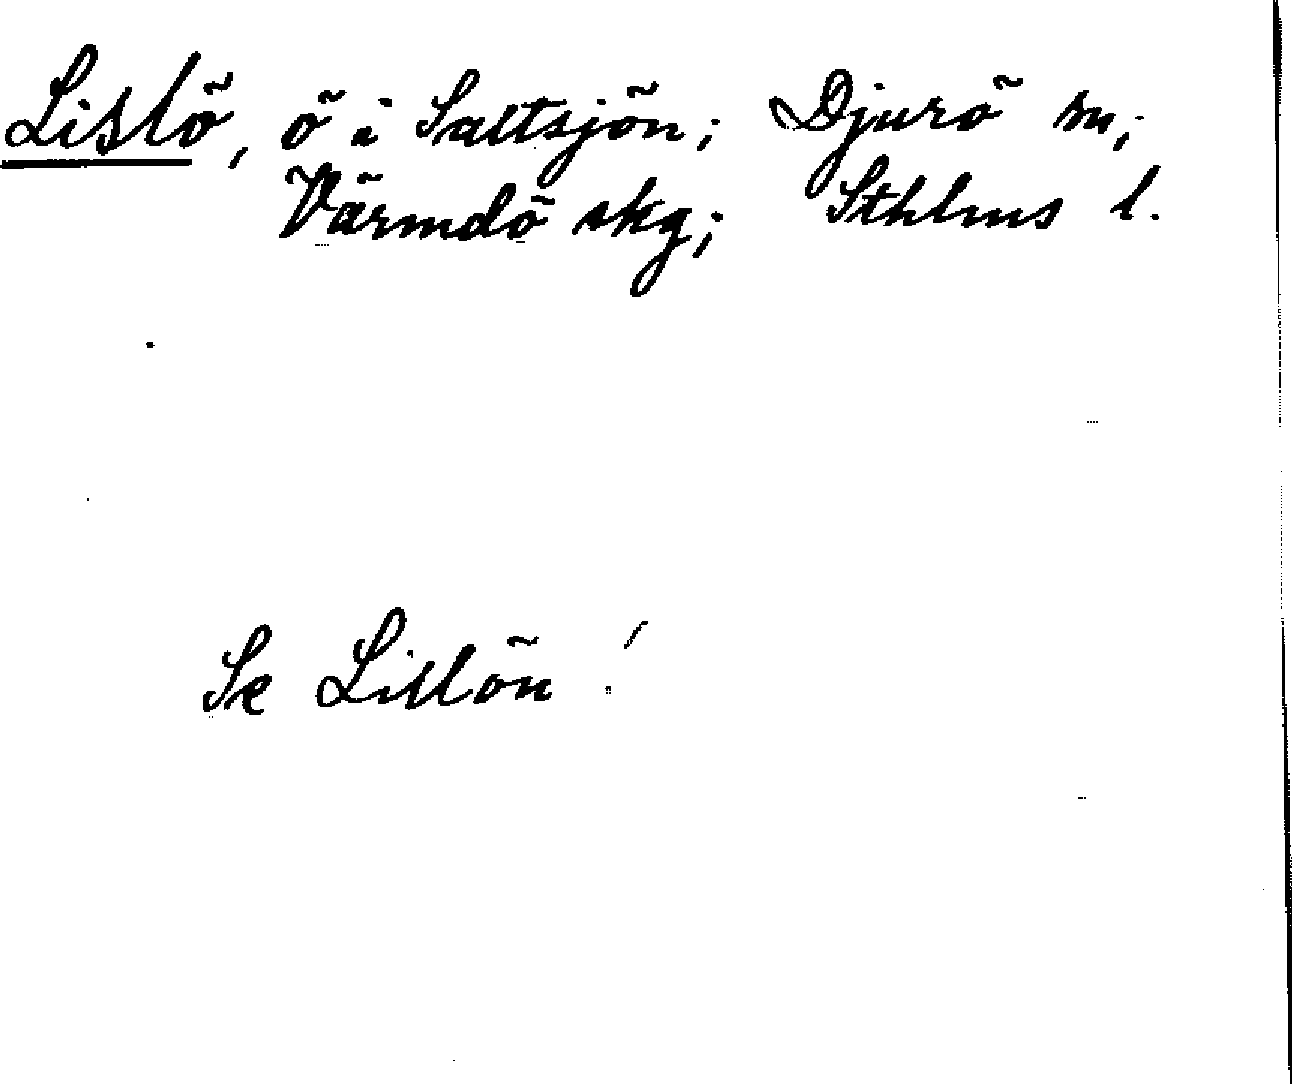 Lislö, ö i Saltsjön; Djurö sn;
Värmdö skg; Sthlms l.
Se Lillön!